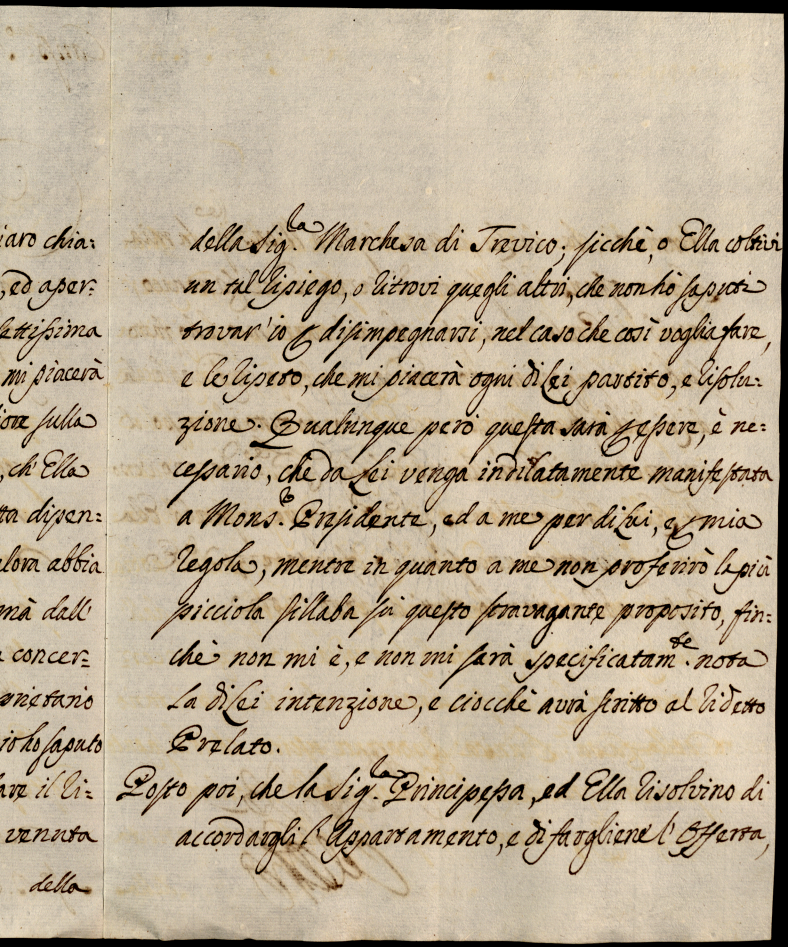 iaro chia:
, ed aper:
lettissima
mi piacerà
iore sulla
, ch' Ella
tta dipen:
lora abbia
mà dall'
concer:
prietario
io ho saputo
are il ri:
venuta
della
della Sig.ra Marchesa di Trevico; sicchè, o Ella coltivi
un tal ripiego, o ritrovi quegli altri, che non hò saputi
trovar' io per disimpegnarsi, nel caso che così voglia fare,
e le ripeto, che mi piacerà ogni di Lei partito, e risolu:
zione. Qualunque però questa sarà per essere, è ne:
cessario, che da Lei venga indilatamente manifestata
a Mons.r Presidente, ed a me per di Lui, e per mia
regola, mentre in quanto a me non proferirò la più
picciola sillaba sù questo stravagante proposito, fin:
chè non mi è, e non mi sarà specificatam.te nota
La di Lei intenzione, e ciocchè avrà scritto al ridetto
Prelato.
Posto poi, che la Sig.ra Principessa, ed Ella risolvino di
accordargli l'Appartamento, e di fargliene l'Offerta,